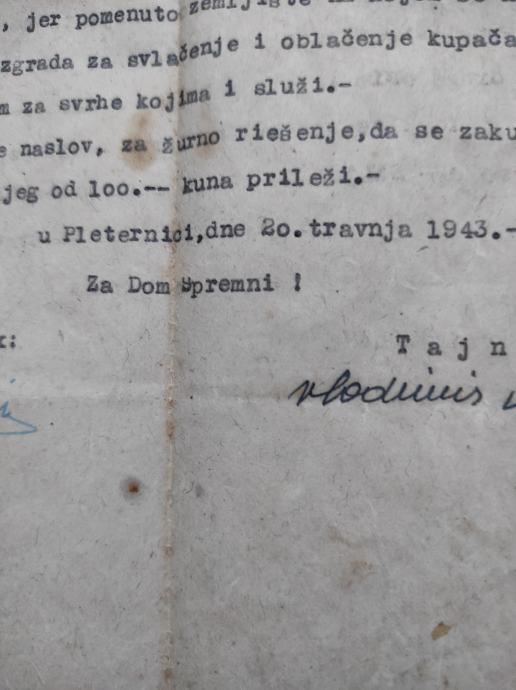 , jer pomenuto zemljište
zgrada za svlačenje i oblačenje kupača
m za svrhe kojima i služi.-
e naslov, za žurno riešenje,da se zaku
jeg od loo.-- kuna prileži.-
u Pleternici,dne 2o.travnja 1943.-
Za Dom Spremni !
k:
T a j n
Vladimir